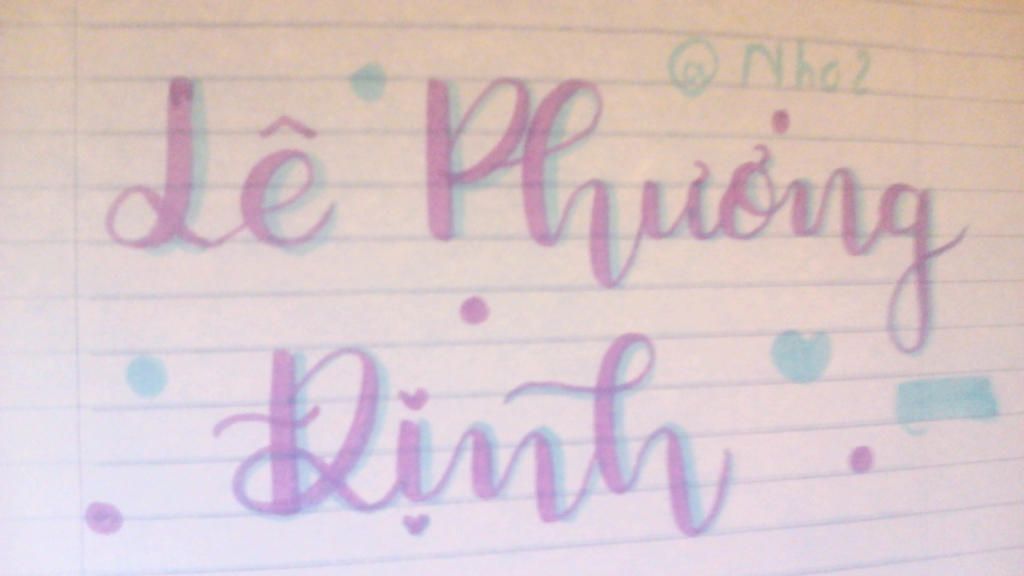 @Nho2
Lê Phương
Định